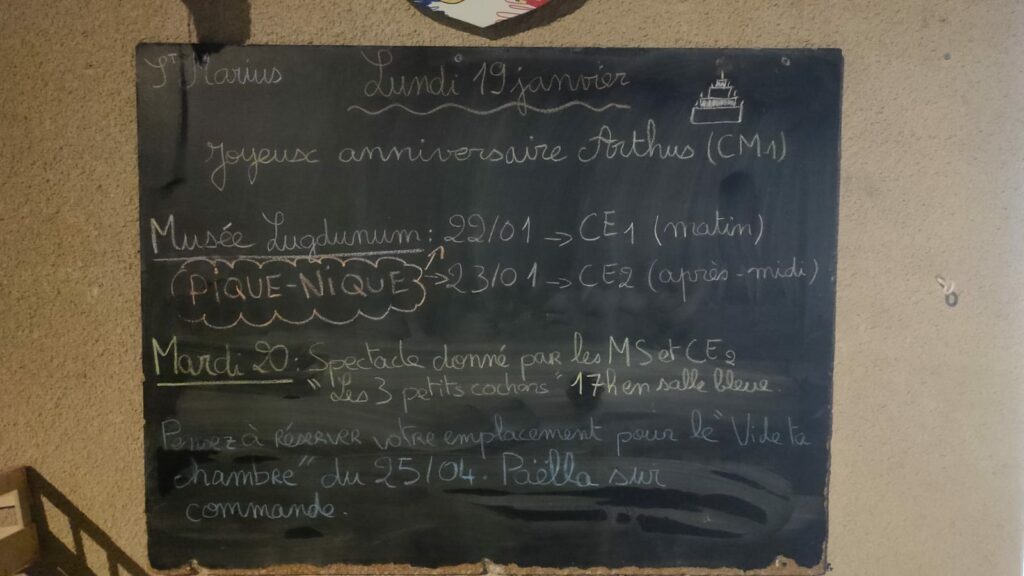 St Marius
Lundi 19 janvier
Joyeux anniversaire Arthus (CM1)
Musée Lugdunum : 22/01 → CE1 (matin)
PIQUE-NIQUE → 23/01 → CE2 (après-midi)
Mardi 20 : Spectacle donné par les MS et CE2
"Les 3 petits cochons" 17h en salle bleue.
Pensez à RÉSERVER votre emplacement pour le "Vide ta
chambre" du 25/04. Paëlla sur
commande.